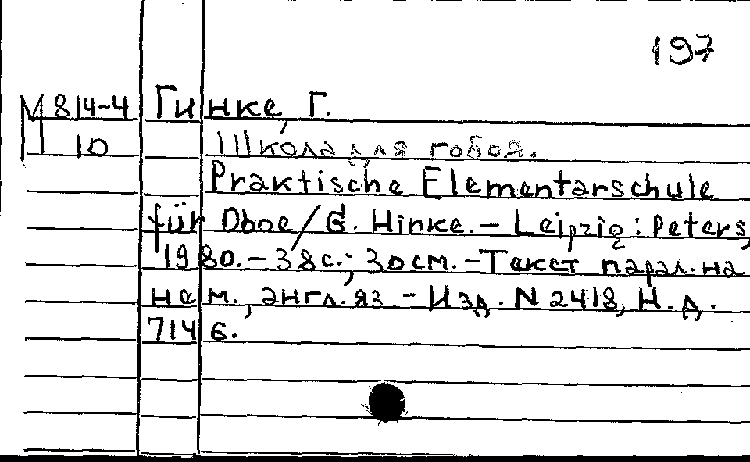 197
М 814-4 Гинке, Г.
10 Школа для гобоя.
Praktische Elementarschule
für Oboe / G. Hinke. – Leipzig: Peters,
1980. – 38с.; 30см. – Текст парал. на
нем., англ. яз. – Изд. N 2418, Н. д.
7146.